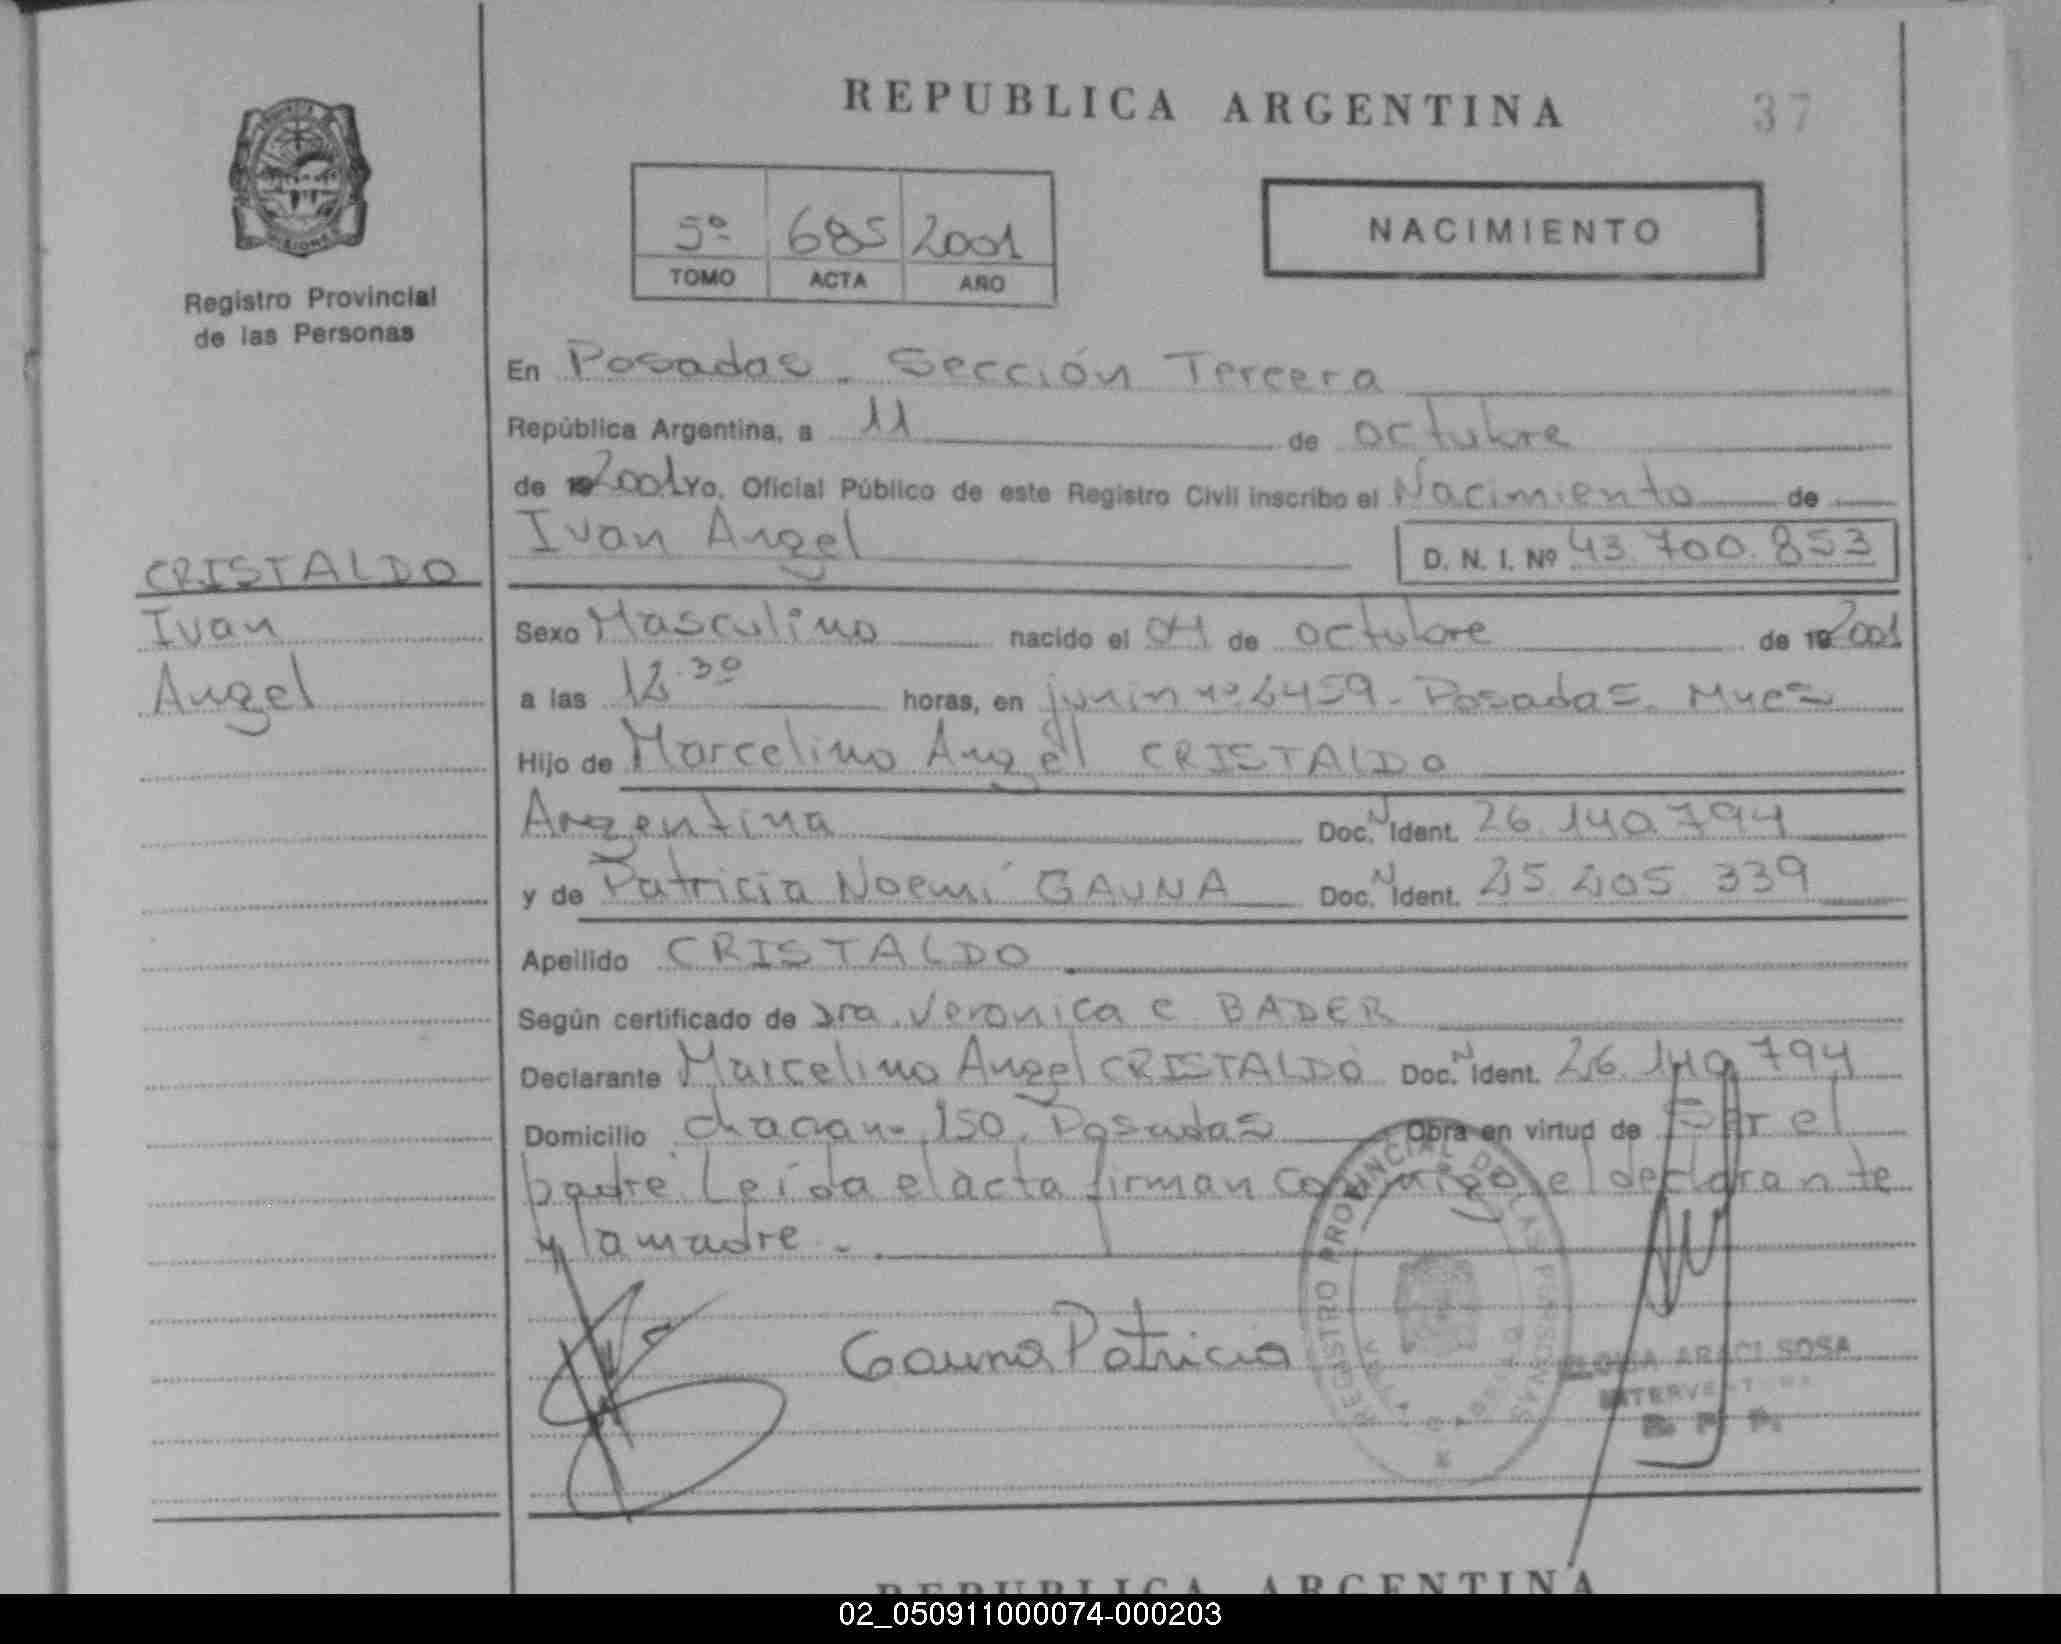 REPUBLICA ARGENTINA
37
5º 685 2001
TOMO ACTA AÑO
NACIMIENTO
Registro Provincial
de las Personas
En Posadas - Sección Tercera
República Argentina, a 11 de octubre
de 19 2001 Yo, Oficial Público de este Registro Civil inscribo el Nacimiento de
Ivan Angel D. N. I. Nº 43.700.853
CRISTALDO
Ivan
Angel
Sexo Masculino nacido el 04 de octubre de 19 2001
a las 12.30 horas, en junin nº 2459 - Posadas. Mnes
Hijo de Marcelino Angel CRISTALDO
Argentina Doc. N Ident. 26.140.794
y de Patricia Noemí GAUNA Doc. N Ident. 25.205.339
Apellido CRISTALDO
Según certificado de Dra. Veronica C. BADER
Declarante Marcelino Angel CRISTALDO Doc. N Ident. 26.140.794
Domicilio 150. Posadas Obra en virtud de Ser el
padre. Leída el acta firman conmigo el declarante
y la madre -
Gauna Patricia
REGISTRO PROVINCIAL DE LAS PERSONAS
ARACI SOSA
INTERVENTORA
R. P. P.
REPUBLICA ARGENTINA
02_050911000074-000203